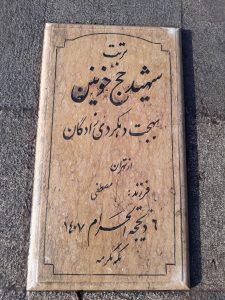 تربت
شهید حج خونین
بهجت دهکردی زادگان
از تهران
فرزند: مصطفی
۶ ذیحجه الحرام ۱۴۰۷
مکه مکرمه